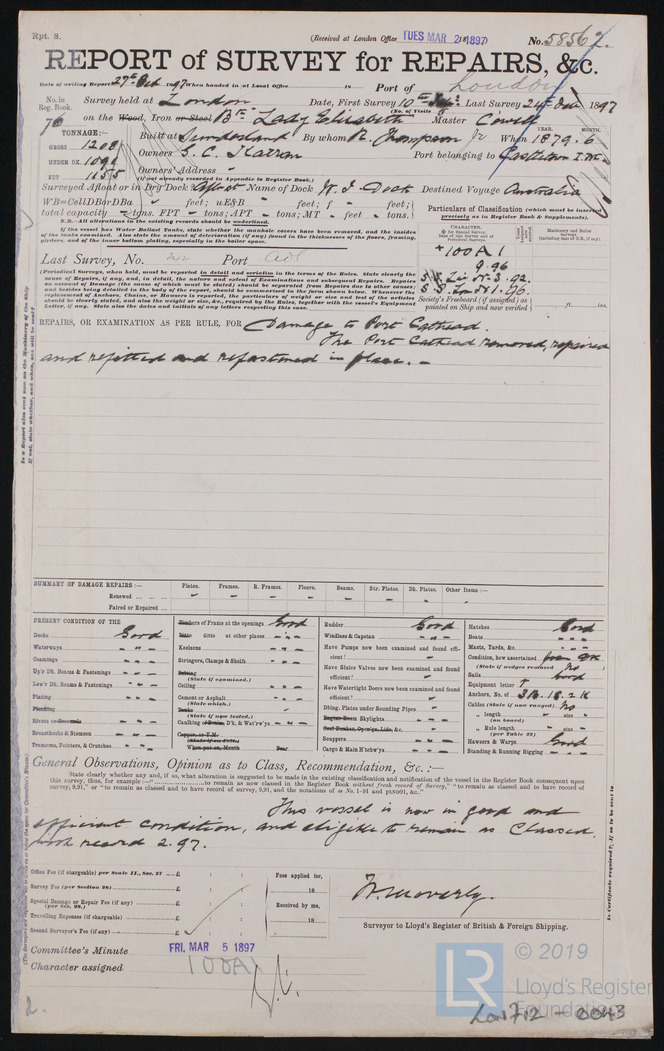 Rpt. 8.
(Received at London Office TUES MAR 2 1897)
No. 58562.
REPORT of SURVEY for REPAIRS, &c.
Date of writing Report 27th Feb 1897 When handed in at Local Office 18 Port of London
No. in Reg. Book. Survey held at London Date, First Survey 10th Feb: Last Survey 24th Feb 1897
(No. of Visits
76 on the Wood, Iron or Steel Bk Lady Elizabeth Master
TONNAGE:— Built at Sunderland By whom R. Thompson Jr When 1879. 6
YEAR. MONTH.
GROSS 1208
Owners G. C. Karran Port belonging to Castletown I. M.
UNDER DK.
Owners' Address -
NET 1155
(if not already recorded in Appendix to Register Book.)
Surveyed Afloat or in Dry Dock? Afloat Name of Dock W. I. Dock Destined Voyage Australia
WB=CellDBorDBa feet; uE&B feet; f feet;
total capacity tons. FPT - tons; APT - tons; MT - feet - tons.
Particulars of Classification (which must be inserted precisely as in Register Book & Supplements).
N.B.—All alterations in the existing records should be underlined.
If the vessel has Water Ballast Tanks, state whether the manhole covers have been removed, and the insides of the tanks examined. Also state the amount of deterioration (if any) found in the thicknesses of the floors, framing, girders, and of the inner bottom plating, especially in the boiler space.
CHARACTER.
+100A1
9.96
Last Survey, No. Port
(Periodical) Surveys, when held, must be reported in detail and seriatim in the terms of the Rules. State clearly the cause of Repairs, if any, and, in detail, the nature and extent of Examinations and subsequent Repairs. Repairs on account of Damage (the cause of which must be stated) should be separated from Repairs due to other causes; and besides being detailed in the body of the report, should be summarised in the form shown below. Whenever the replacement of Anchors, Chains, or Hawsers is reported, the particulars of weight or size and test of the articles should be clearly stated, and also the weight or size, &c., required by the Rules, together with the vessel's Equipment Letter, if any. State also the dates and initials of any letters respecting this case.
Society's Freeboard (if assigned) as painted on Ship and now verified ft. ins.
REPAIRS, OR EXAMINATION AS PER RULE, FOR Damage to Port Cathead.
The Port Cathead removed, repaired
and refitted and refastened in place. -
SUMMARY OF DAMAGE REPAIRS :— Plates. Frames. R. Frames. Floors. Beams. Str. Plates. Dk. Plates. Other Items :—
Renewed ... ... ...
Faired or Repaired ...
PRESENT CONDITION OF THE
Decks Good
Waterways
Coamings
Up'r Dk. Beams & Fastenings
Low'r Dk. Beams & Fastenings
Plating
Planking
Rivets or Treenails
Breasthooks & Stemson
Transoms, Pointers, & Crutches
Timbers of Frame at the openings Good
Ditto ditto at other places
Keelsons
Stringers, Clamps & Shelfs
(State if examined.)
Ceiling
Cement or Asphalt
(State which.)
Tanks
(State if now tested.)
Caulking of Bottm, D'k, & Wat'rw'ys
Copper, or Y.M.
When put on, Month Year
Rudder Good
Windlass & Capstan
Have Pumps now been examined and found efficient?
Have Sluice Valves now been examined and found efficient?
Have Watertight Doors now been examined and found efficient?
Dblng. Plates under Sounding Pipes
Engine Room Skylights
Coal Bunker, Open'gs, Lids, &c.
Scuppers
Cargo & Main H'tchw'ys
Hatches Good
Boats
Masts, Yards, &c.
Condition, how ascertained from Dk
(State if wedges removed) No
Sails Good
Equipment letter
Anchors, No. of 3B. 1S. 2K
Cables (State if now ranged) No
„ length „ size
(on board)
„ Rule length „ size
(per Table 22)
Hawsers & Warps Good
Standing & Running Rigging
General Observations, Opinion as to Class, Recommendation, &c. :—
State clearly whether any and, if so, what alteration is suggested to be made in the existing classification and notification of the vessel in the Register Book consequent upon this survey, thus, for example :—"...to remain as now classed in the Register Book without fresh record of Survey," "to remain as classed and to have record of survey, 9,91," or "to remain as classed and to have record of survey, 9,91, and the notations of ss No. 1-91 and ptsND91, &c."
This vessel is now in good and
efficient condition, and eligible to remain as Classed.
with record 2.97.
Office Fee (if chargeable) per Scale II., Sec. 27 £ : :
Survey Fee (per Section 28) £ : :
Special Damage or Repair Fee (if any) £ : :
(per Sec. 28.)
Travelling Expenses (if chargeable) £ : :
Second Surveyor's Fee (if any) £ : :
Fees applied for, 18
Received by me, 18
Surveyor to Lloyd's Register of British & Foreign Shipping.
Committee's Minute FRI. MAR 5 1897
Character assigned 100A1
© 2019
LR Lloyd's Register Foundation
2.